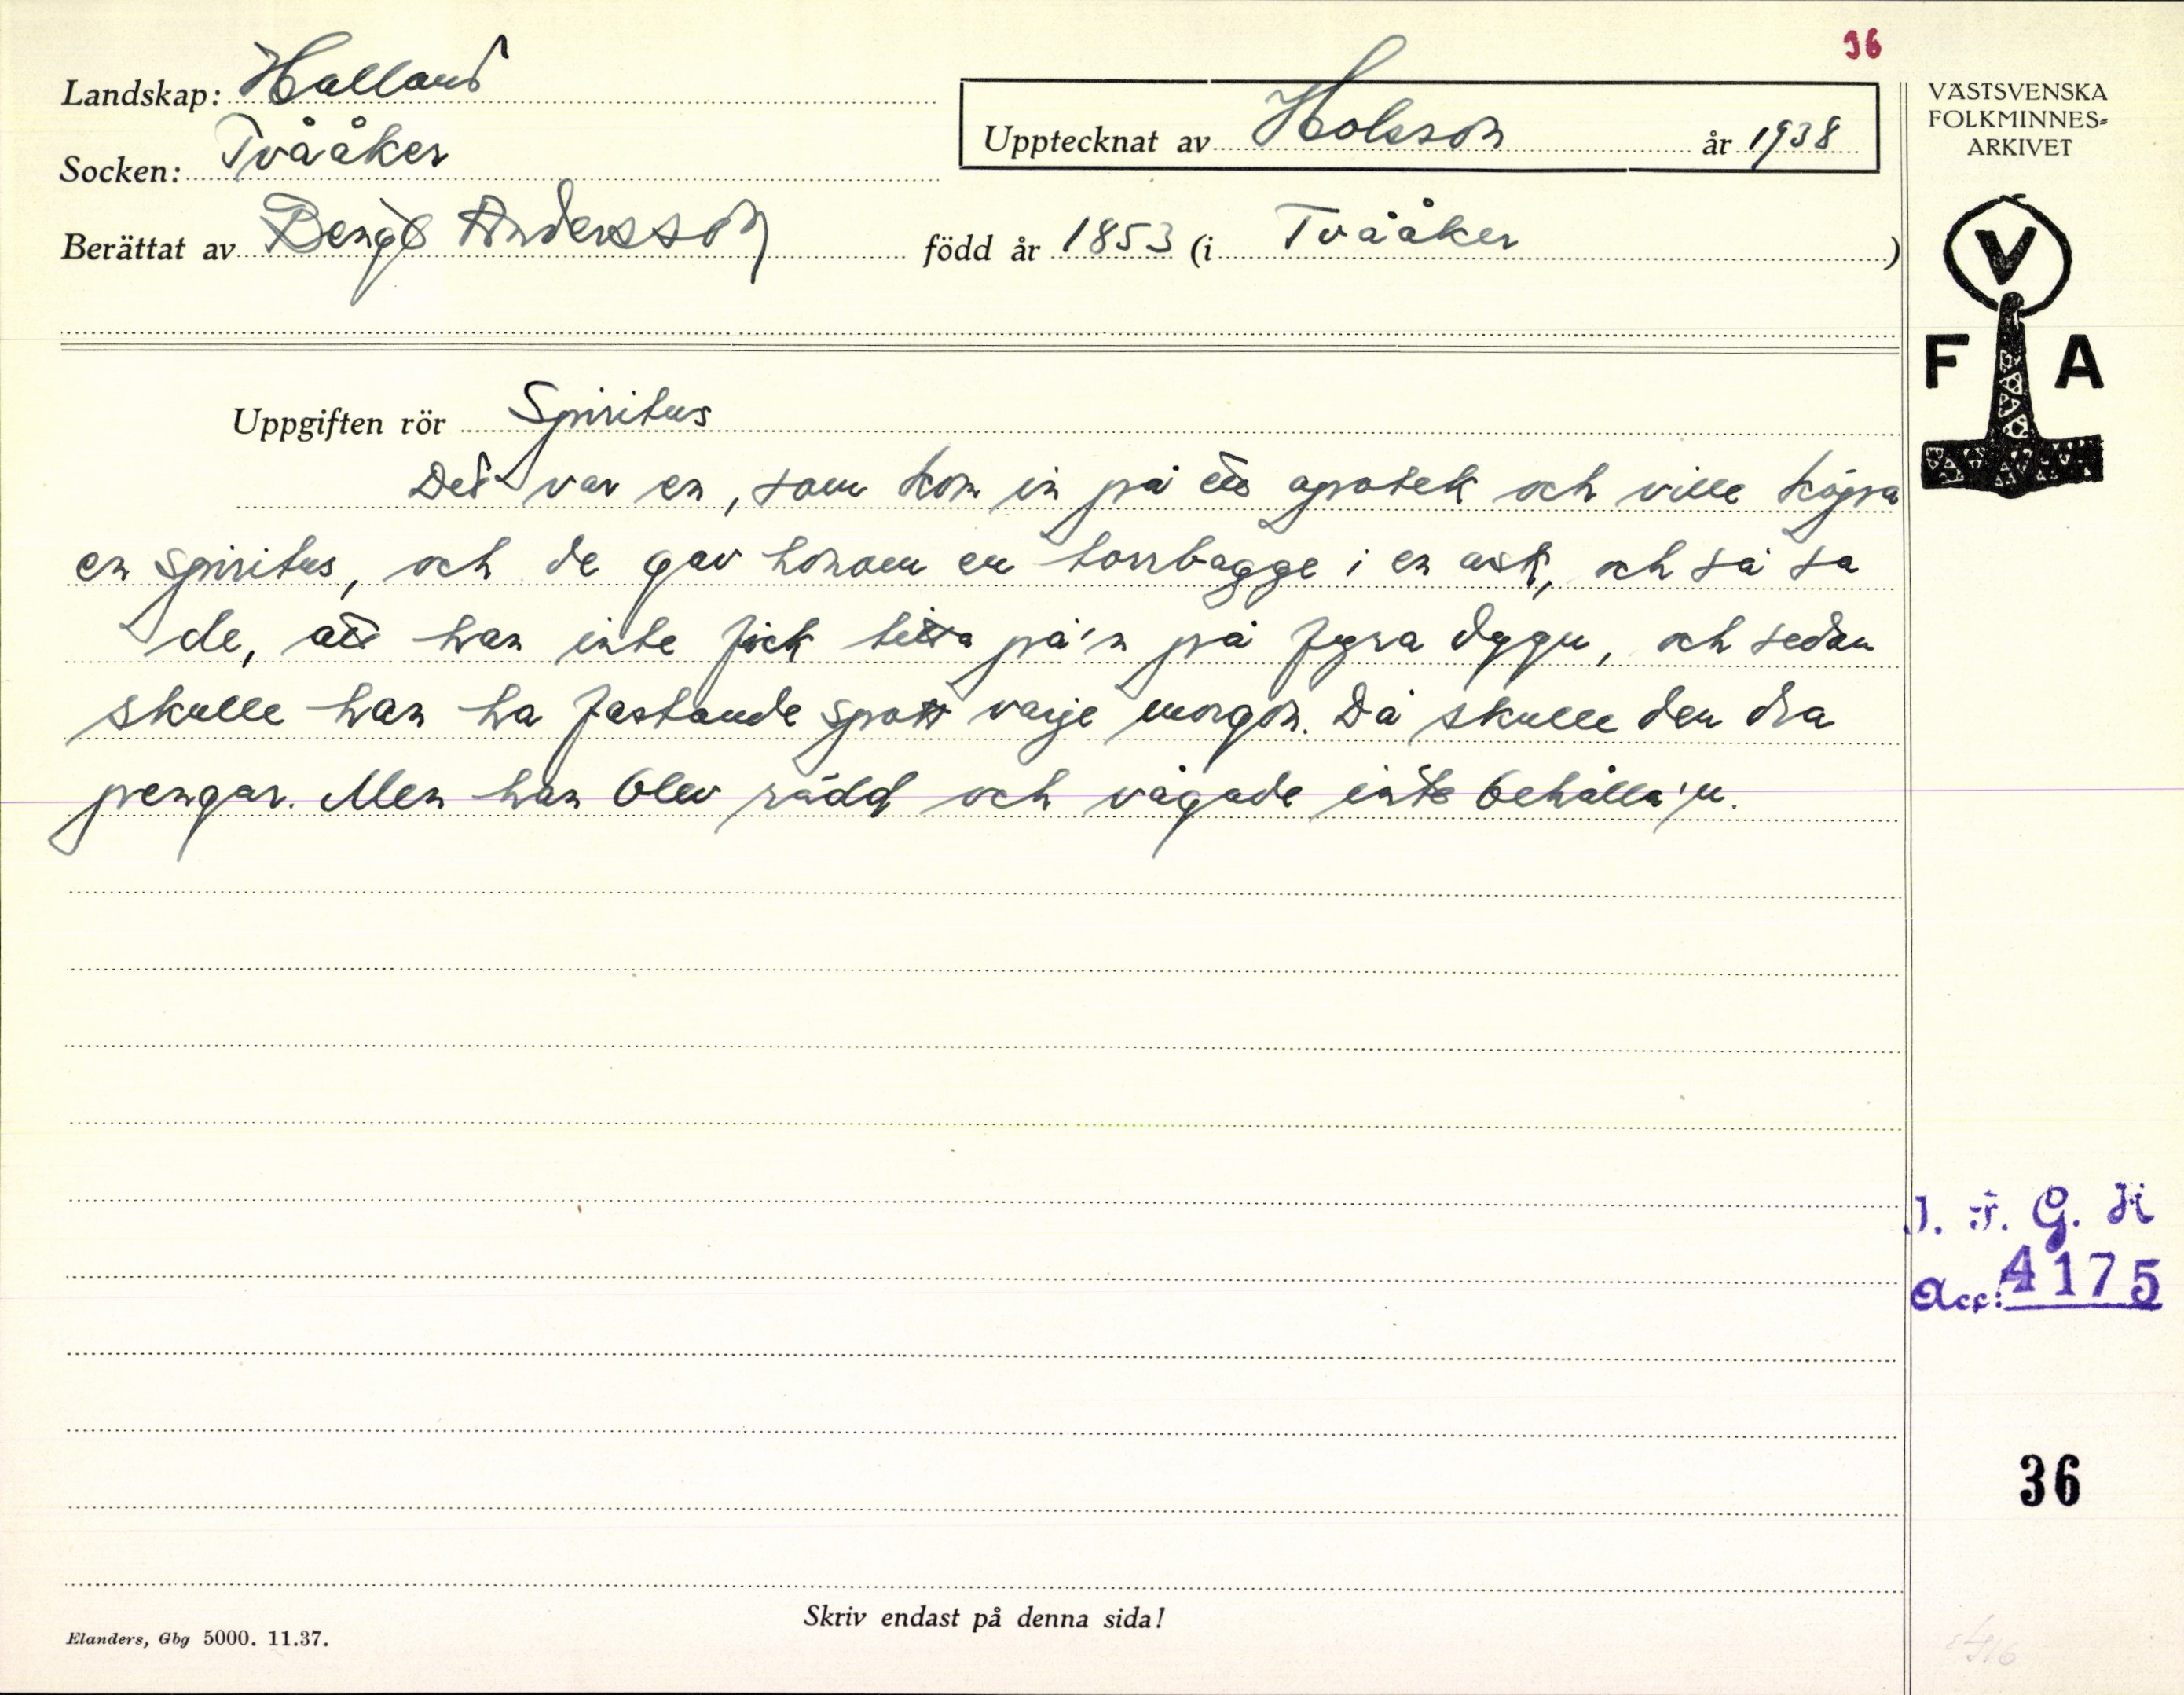 36
Landskap: Halland
Socken: Tvååker
Upptecknat av Holsson år 1938
Berättat av Bengt Andersson född år 1853 (i Tvååker)
VÄSTSVENSKA
FOLKMINNES-
ARKIVET
V
F A
Uppgiften rör Spiritus
Det var en, som kom in på ett apotek och ville köpa
en spiritus, och de gav honom en torrbagge i en ask, och så sa
de, att han inte fick titta på'n på fyra dygn, och sedan
skulle han ha fastande spott varje morgon. Då skulle den dra
pengar. Men han blev rädd och vågade inte behålla'n.
I. F. G. H
Acc: 4175
36
Skriv endast på denna sida!
Elanders, Gbg 5000. 11.37.